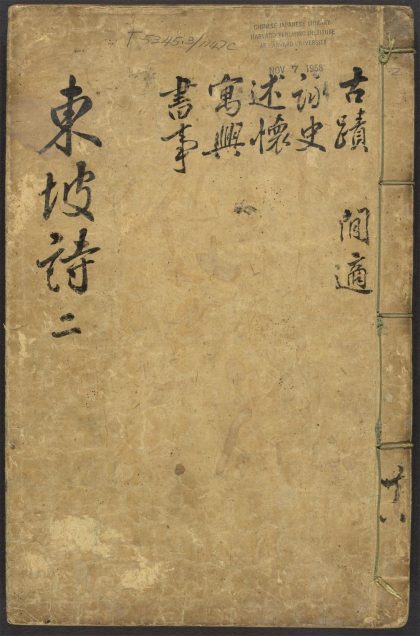 T 5345.3/1147C
CHINESE-JAPANESE LIBRARY
HARVARD-YENCHING INSTITUTE
AT HARVARD UNIVERSITY
NOV 7 1958
古蹟 閒適
詠史
述懷
寓興
書事
東坡詩二
共八